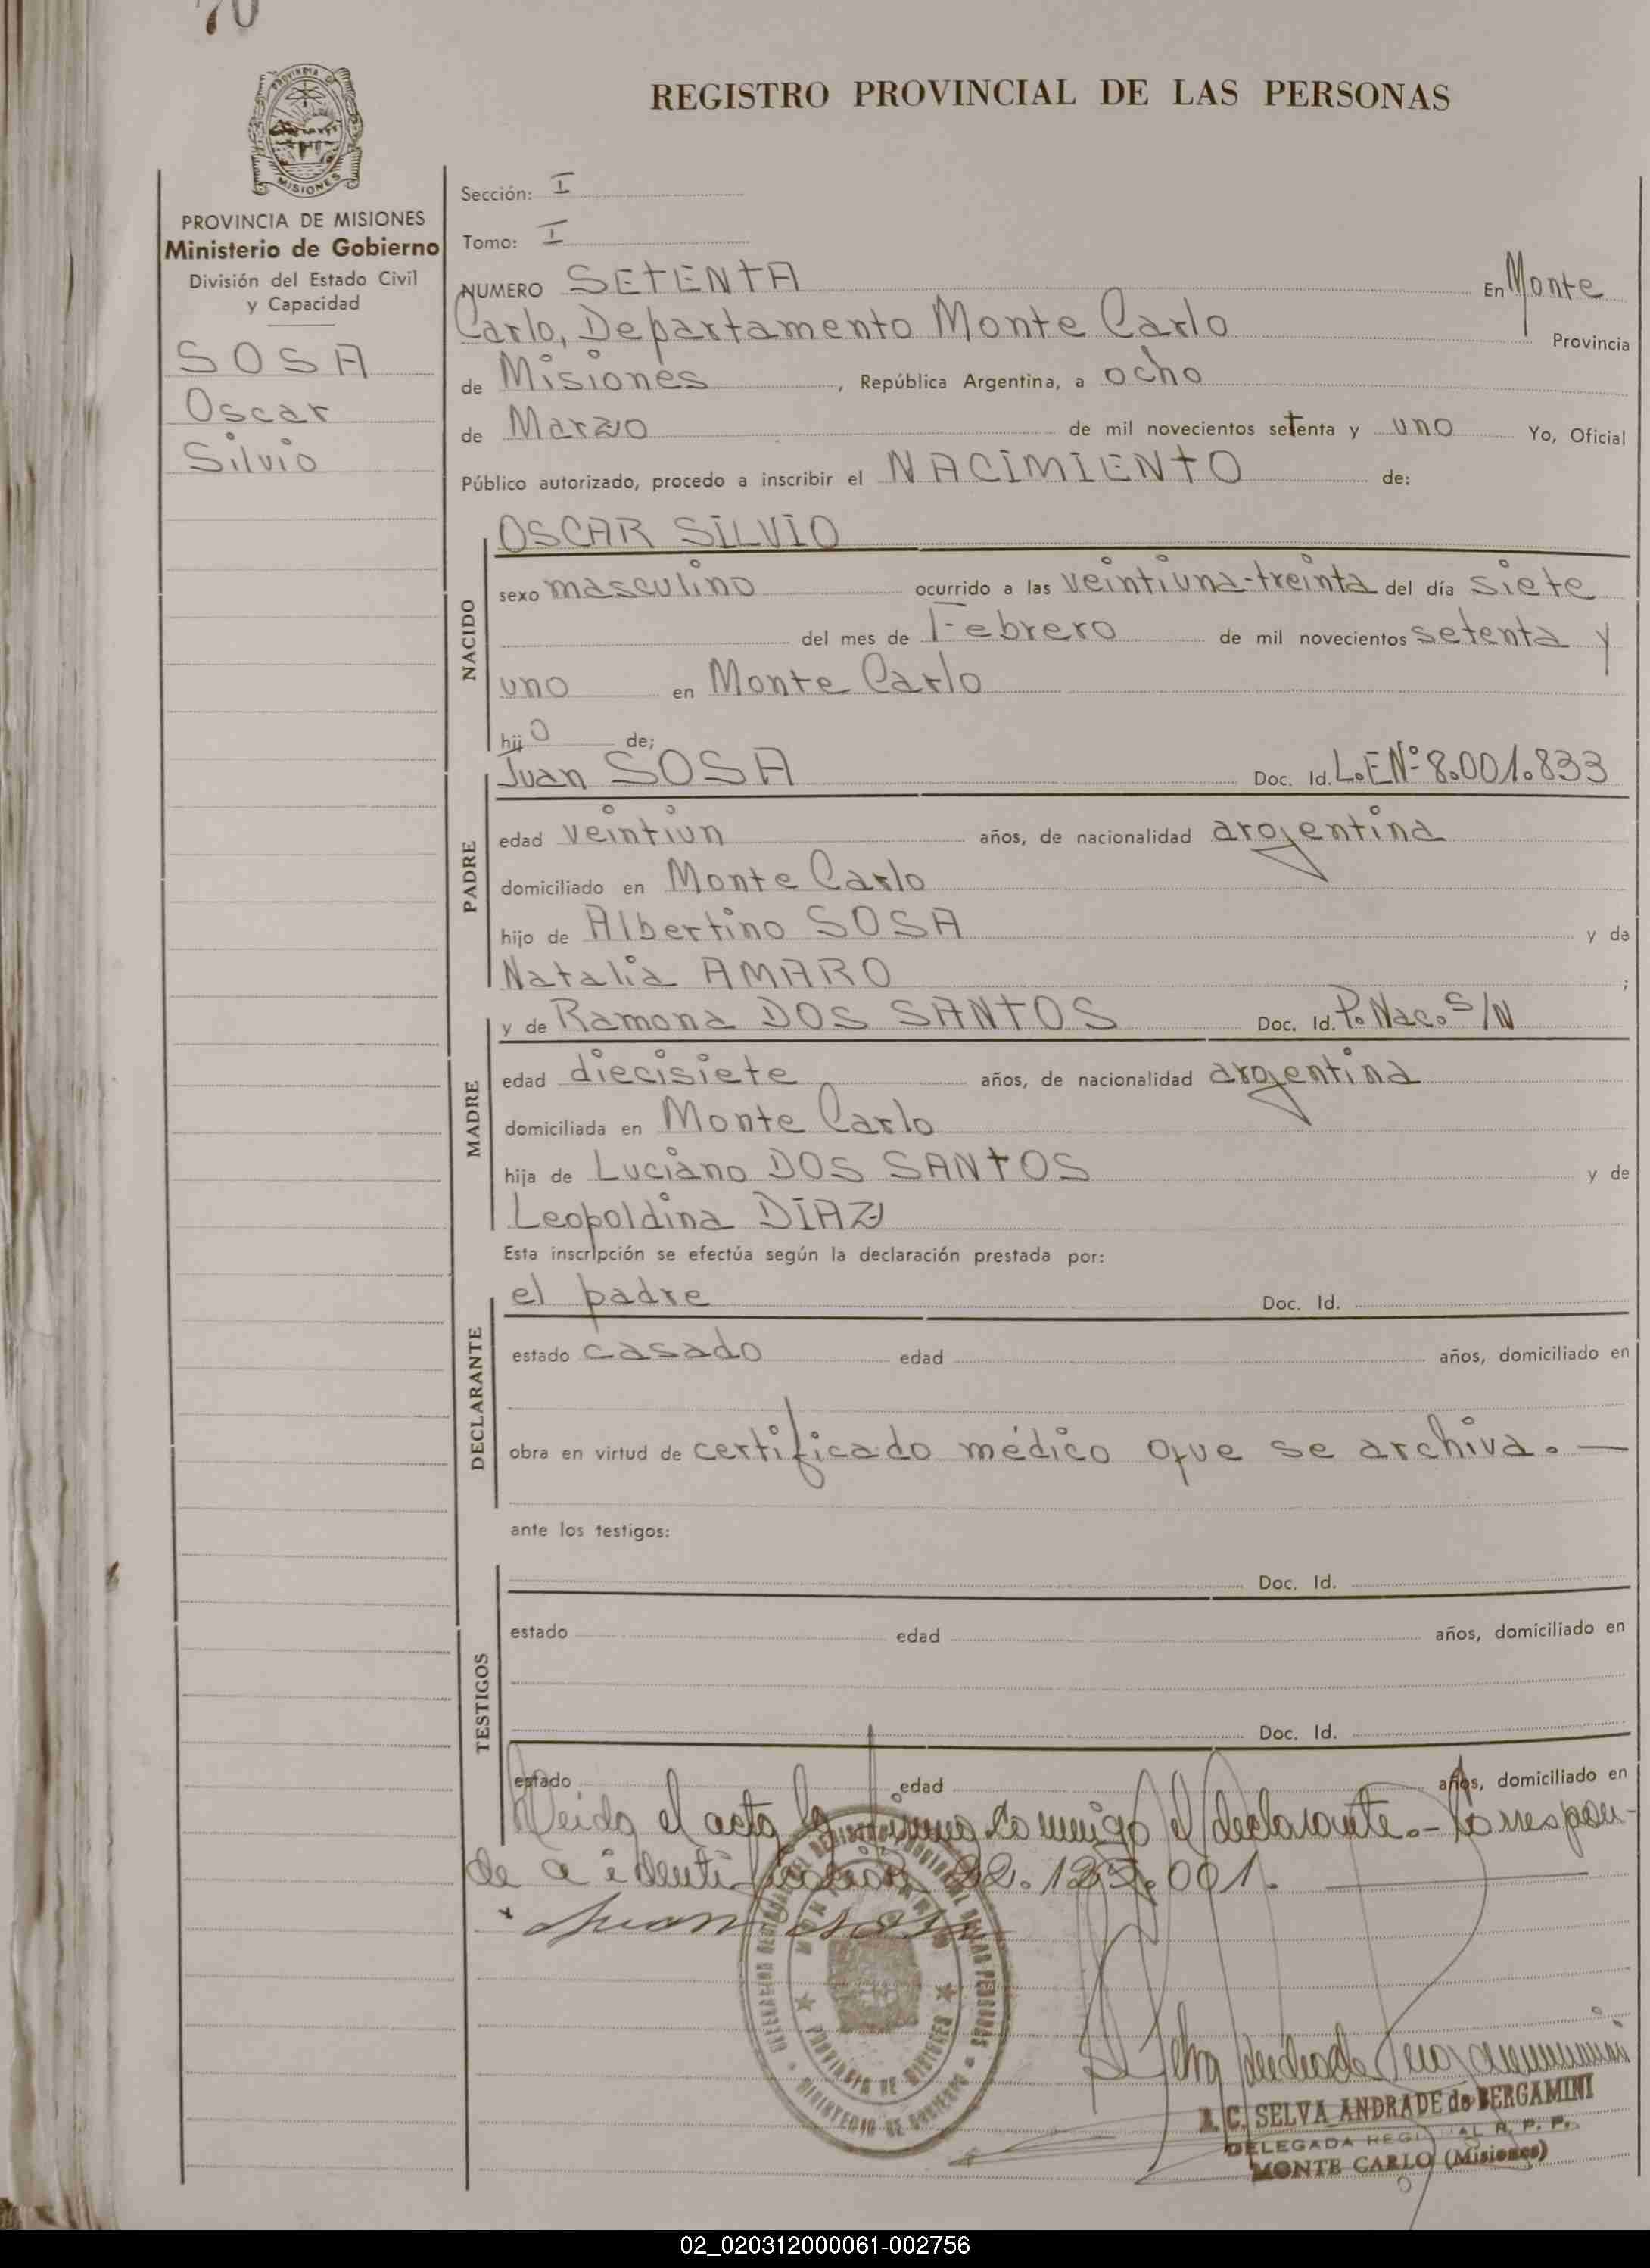 70
PROVINCIA DE
MISIONES
REGISTRO PROVINCIAL DE LAS PERSONAS
PROVINCIA DE MISIONES
Ministerio de Gobierno
División del Estado Civil
y Capacidad
SOSA
Oscar
Silvio
Sección: I
Tomo: I
NUMERO SETENTA En Monte
Carlo, Departamento Monte Carlo Provincia
de Misiones, República Argentina, a ocho
de Marzo de mil novecientos setenta y uno Yo, Oficial
Público autorizado, procedo a inscribir el NACIMIENTO de:
NACIDO
OSCAR SILVIO
sexo masculino ocurrido a las veintiuna-treinta del día siete
del mes de Febrero de mil novecientos setenta y
uno en Monte Carlo
hijo de;
PADRE
Juan SOSA Doc. Id. L.E.Nº 8.001.833
edad veintiun años, de nacionalidad argentina
domiciliado en Monte Carlo
hijo de Albertino SOSA y de
Natalia AMARO ;
MADRE
y de Ramona DOS SANTOS Doc. Id. P. Nac. S/N
edad diecisiete años, de nacionalidad argentina
domiciliada en Monte Carlo
hija de Luciano DOS SANTOS y de
Leopoldina DIAZ
Esta inscripción se efectúa según la declaración prestada por:
DECLARANTE
el padre Doc. Id.
estado casado edad años, domiciliado en
obra en virtud de certificado médico que se archiva. —
ante los testigos:
TESTIGOS
Doc. Id.
estado edad años, domiciliado en
Doc. Id.
estado edad años, domiciliado en
Leida el acta la firma conmigo el declarante.- Correspon-
de a identificación 22.123.001. —
Juan Sosa
PROVINCIA DE MISIONES
MINISTERIO DE GOBIERNO
A. C. SELVA ANDRADE de BERGAMINI
DELEGADA REGISTRAL R. P. P.
MONTE CARLO (Misiones)
02_020312000061-002756